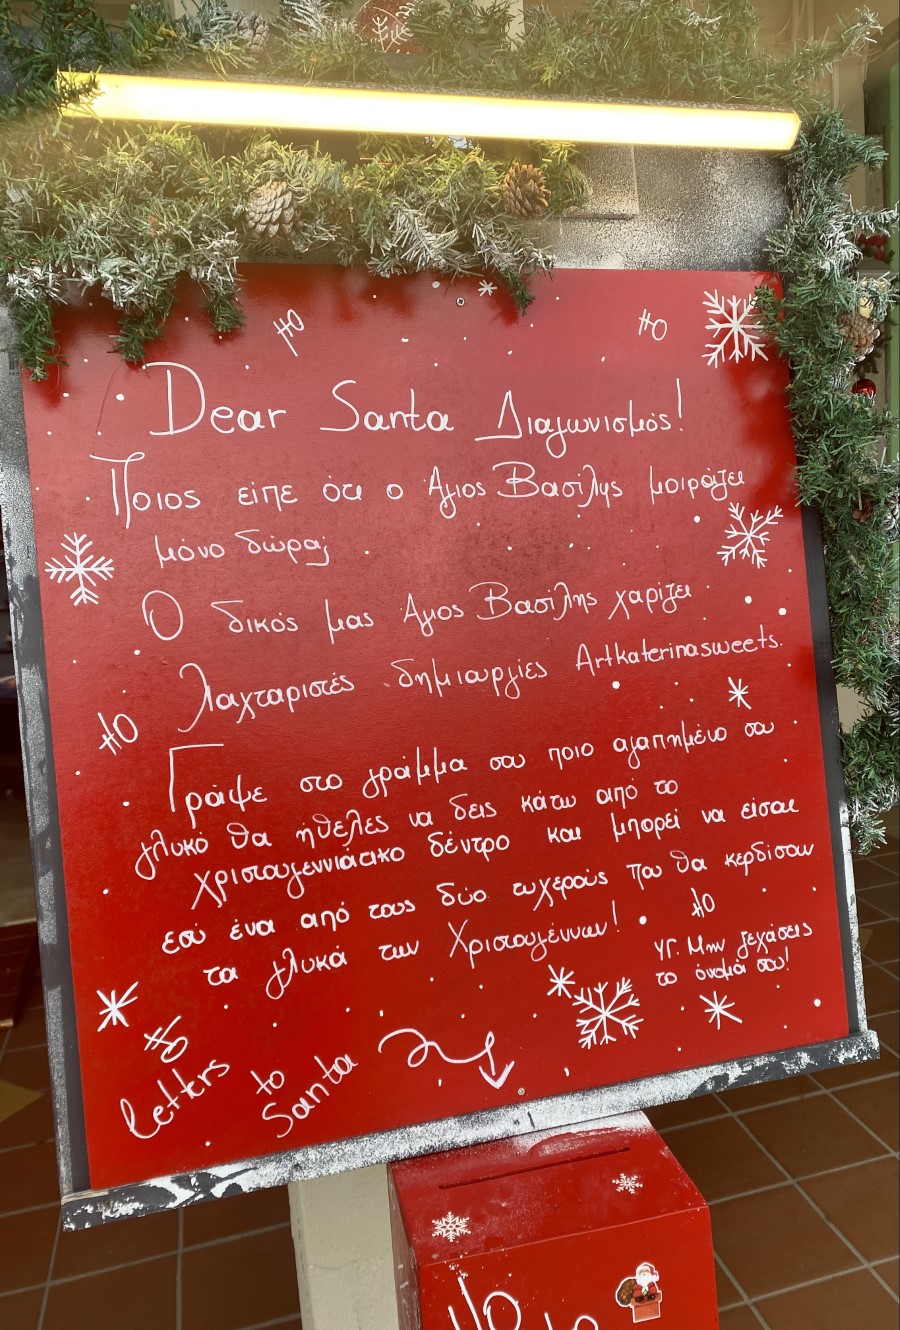 HO HO
Dear Santa Διαγωνισμός!
Ποιος είπε ότι ο Άγιος Βασίλης μοιράζει
μόνο δώρα;
Ο δικός μας Άγιος Βασίλης χαρίζει
λαχταριστές δημιουργίες Artkaterinasweets.
HO
Γράψε στο γράμμα σου ποιο αγαπημένο σου
γλυκό θα ήθελες να δεις κάτω από το
χριστουγεννιάτικο δέντρο και μπορεί να είσαι
εσύ ένα από τους δύο τυχερούς που θα κερδίσουν
τα γλυκά των Χριστουγέννων!
HO
ΥΓ. Μην ξεχάσεις
το όνομά σου!
HO
Letters to
Santa
Ho